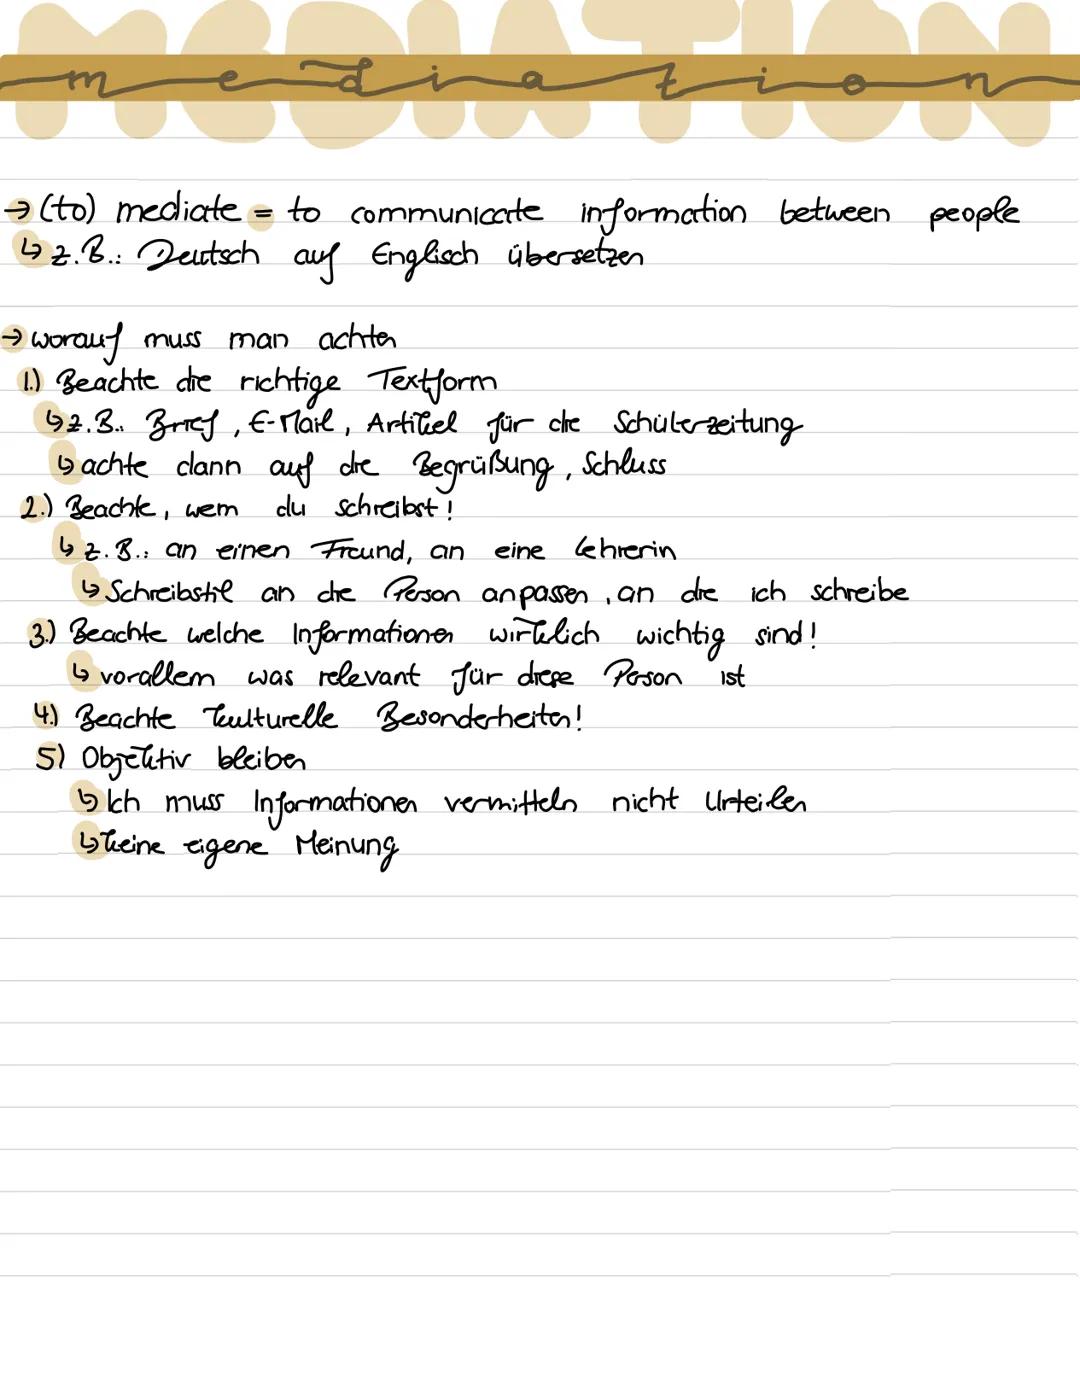 MEDIATION
mediation
→ (to) mediate = to communicate information between people
↳ z.B.: Deutsch auf Englisch übersetzen
→ worauf muss man achten
1.) Beachte die richtige Textform
↳ z.B. Brief, E-Mail, Artikel für die Schülerzeitung
↳ achte dann auf die Begrüßung, Schluss
2.) Beachte, wem du schreibst!
↳ z.B.: an einen Freund, an eine Lehrerin
↳ Schreibstil an die Person anpassen, an die ich schreibe
3.) Beachte welche Informationen wirklich wichtig sind!
↳ vorallem was relevant für diese Person ist
4.) Beachte kulturelle Besonderheiten!
5) Objektiv bleiben
↳ Ich muss Informationen vermitteln nicht Urteilen
↳ keine eigene Meinung